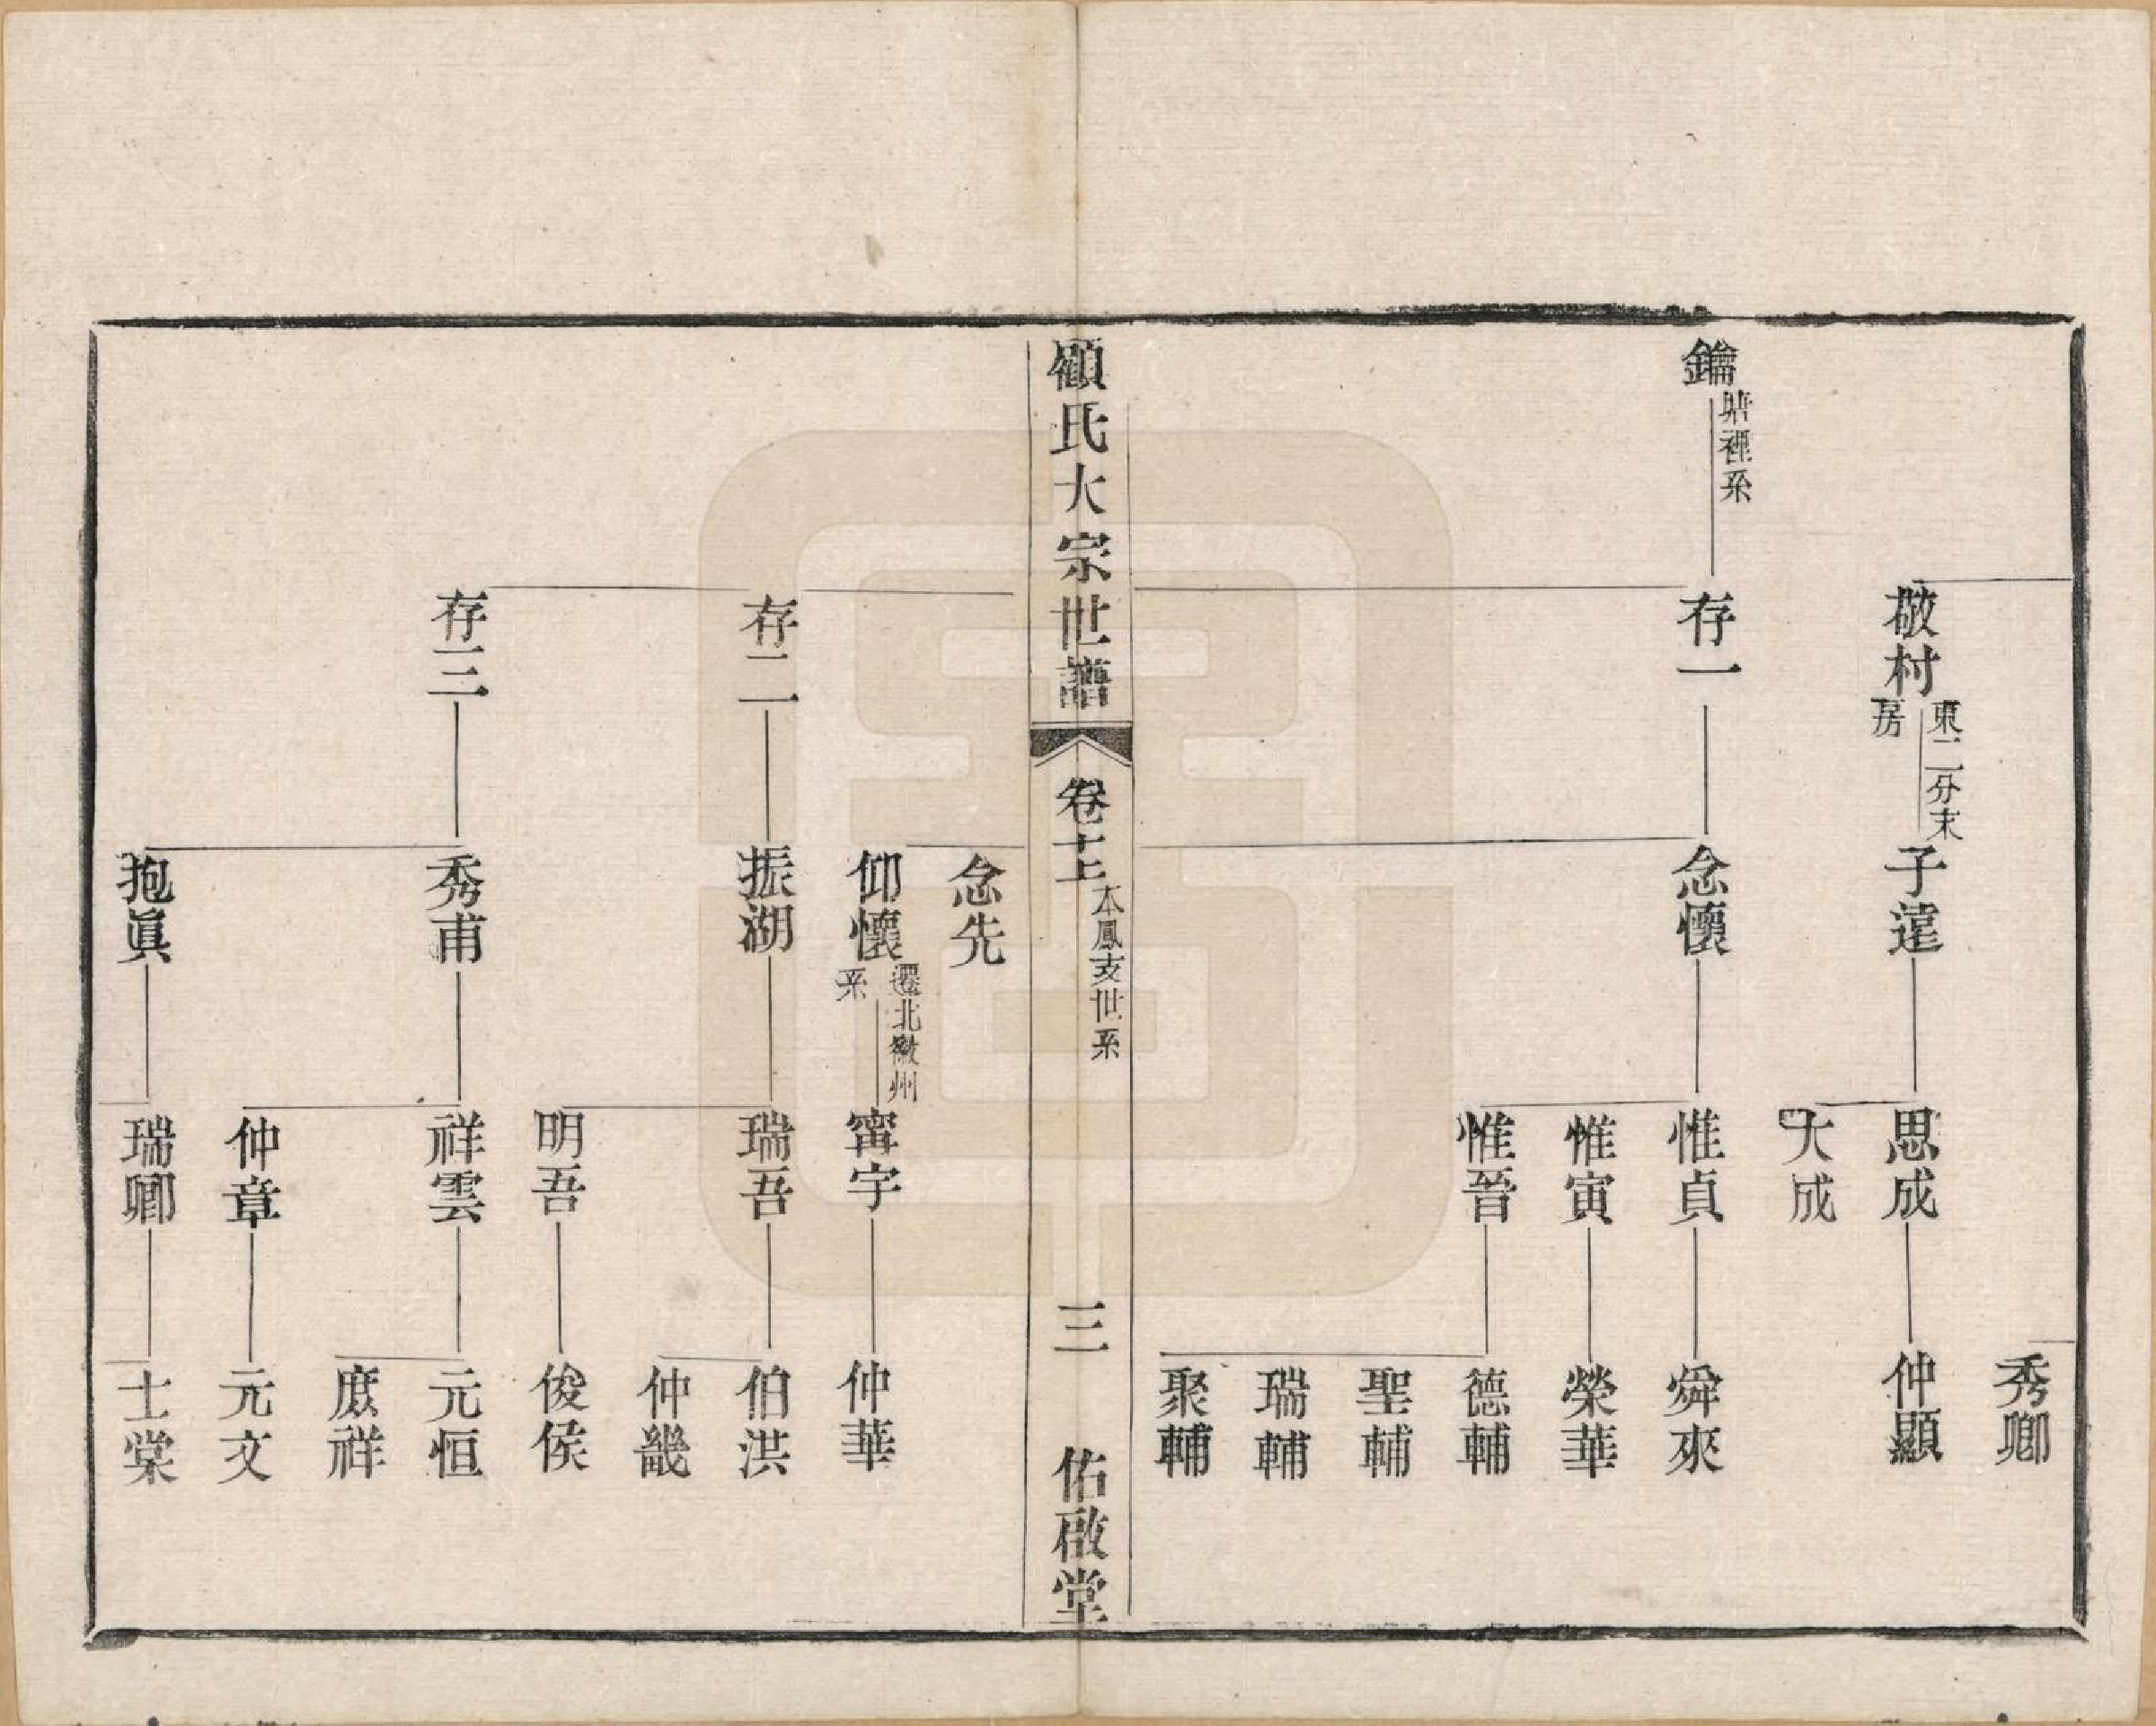 秀卿
敬村
東二分末
房
子達
思成
仲顯
大成
鑰
塘裡系
存一
念懷
惟貞
舜來
惟寅
榮華
惟晉
德輔
聖輔
瑞輔
聚輔
顧氏大宗世譜
卷十上
本鳳支世系
三
佑啟堂
念先
仰懷
遷北徽州
系
甯宇
仲華
存二
振湖
瑞吾
伯洪
仲畿
明吾
俊侯
存三
秀甫
祥雲
元恒
庶祥
仲章
元文
抱眞
瑞卿
士棠